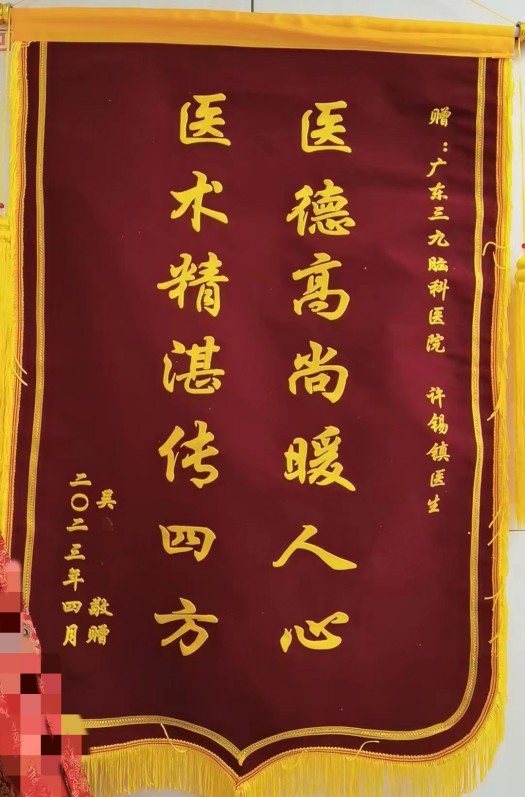 赠：广东三九脑科医院 许锡镇医生
医德高尚暖人心
医术精湛传四方
吴 敬赠
二〇二三年四月